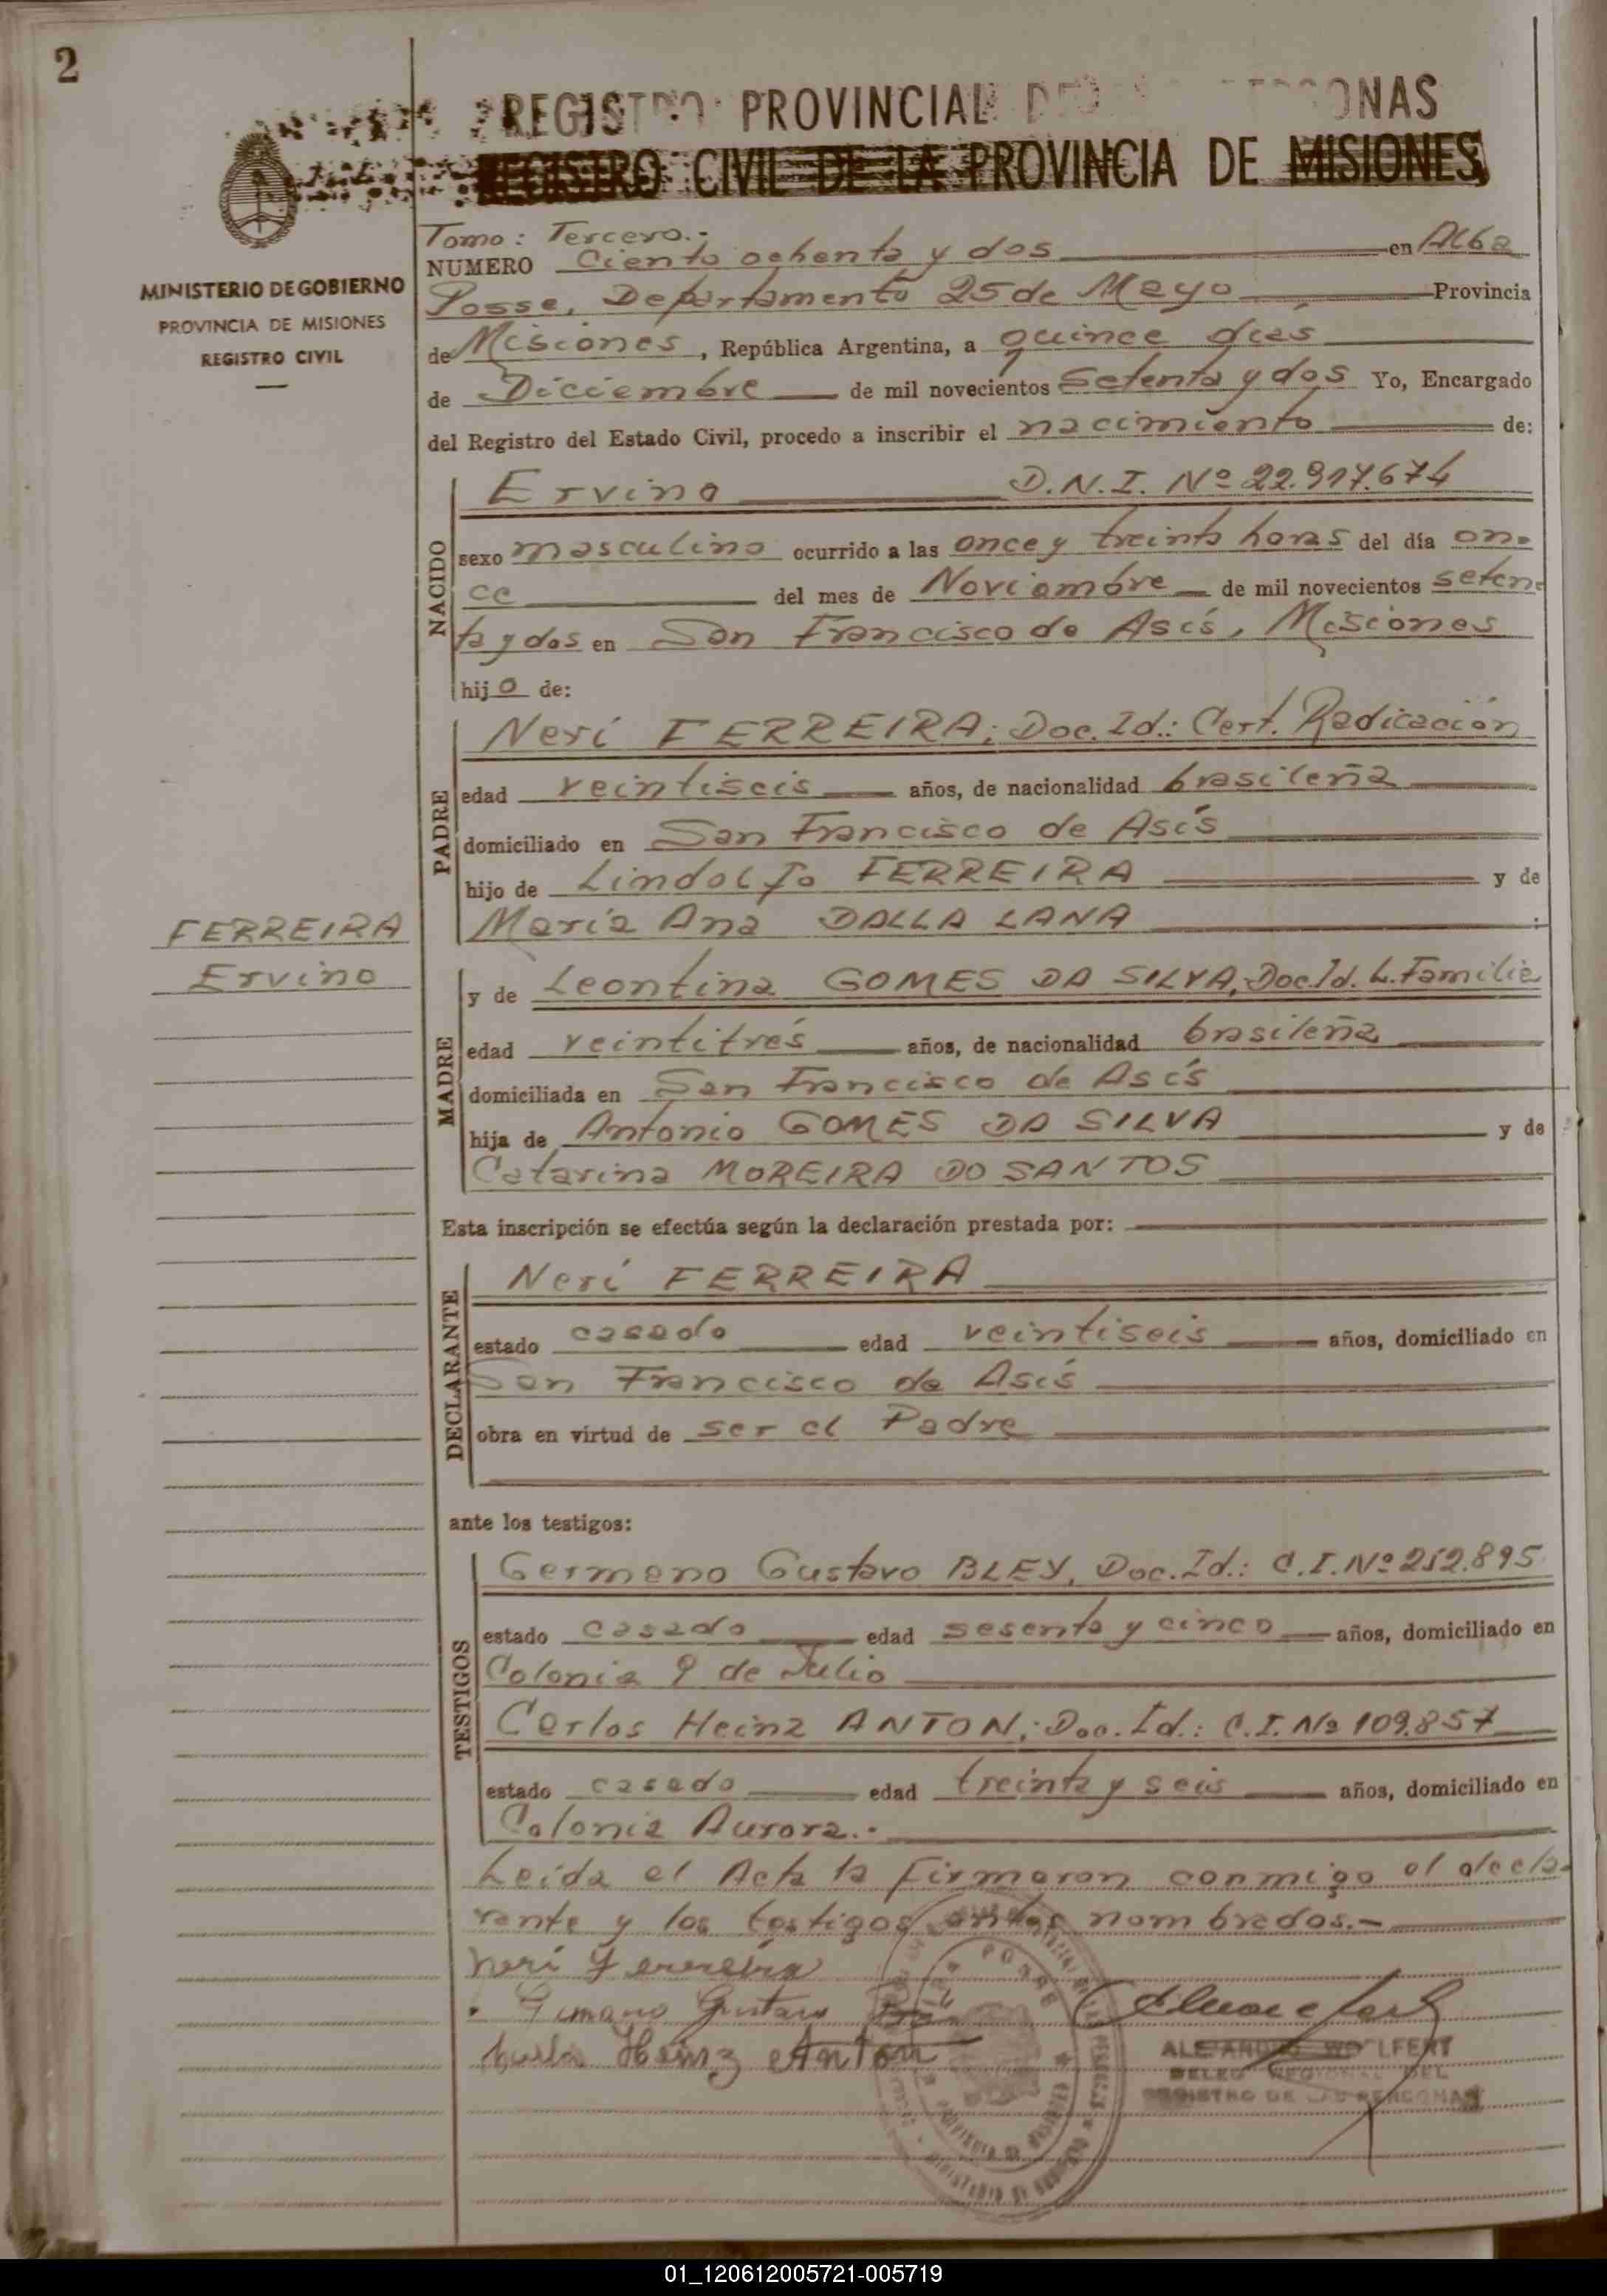 2
REGISTRO PROVINCIAL DE PERSONAS
REGISTRO CIVIL DE LA PROVINCIA DE MISIONES
MINISTERIO DE GOBIERNO
PROVINCIA DE MISIONES
REGISTRO CIVIL
Tomo: Tercero.-
NUMERO Ciento ochenta y dos en Alba
Posse, Departamento 25 de Mayo Provincia
de Misiones, República Argentina, a quince días
de Diciembre de mil novecientos setenta y dos Yo, Encargado
del Registro del Estado Civil, procedo a inscribir el nacimiento de:
NACIDO
Ervino D.N.I. Nº 22.917.674
sexo masculino ocurrido a las once y treinta horas del día on-
ce del mes de Noviembre de mil novecientos seten-
ta y dos en San Francisco de Asís, Misiones
hijo de:
PADRE
Neri FERREIRA; Doc. Id.: Cert. Radicación
edad veintiseis años, de nacionalidad brasileña
domiciliado en San Francisco de Asís
hijo de Lindolfo FERREIRA y de
María Ana DALLA LANA ;
FERREIRA
Ervino
MADRE
y de Leontina GOMES DA SILVA, Doc. Id. L. Familia
edad veintitrés años, de nacionalidad brasileña
domiciliada en San Francisco de Asís
hija de Antonio GOMES DA SILVA y de
Catarina MOREIRA DO SANTOS
Esta inscripción se efectúa según la declaración prestada por:
DECLARANTE
Neri FERREIRA
estado casado edad veintiseis años, domiciliado en
San Francisco de Asís
obra en virtud de ser el Padre
ante los testigos:
TESTIGOS
Germano Gustavo BLEY, Doc. Id.: C.I. Nº 252.895
estado casado edad sesenta y cinco años, domiciliado en
Colonia 9 de Julio
Carlos Heinz ANTON; Doc. Id.: C.I. Nº 109.857
estado casado edad treinta y seis años, domiciliado en
Colonia Aurora.-
Leída el Acta la firmaron conmigo el decla-
rante y los testigos antes nombrados.-
Neri Ferreira
Gustavo
Heinz Anton
ALEJANDRO WOLFERT
DELEG REGIONAL DEL
REGISTRO DE LAS PERSONAS
01_120612005721-005719